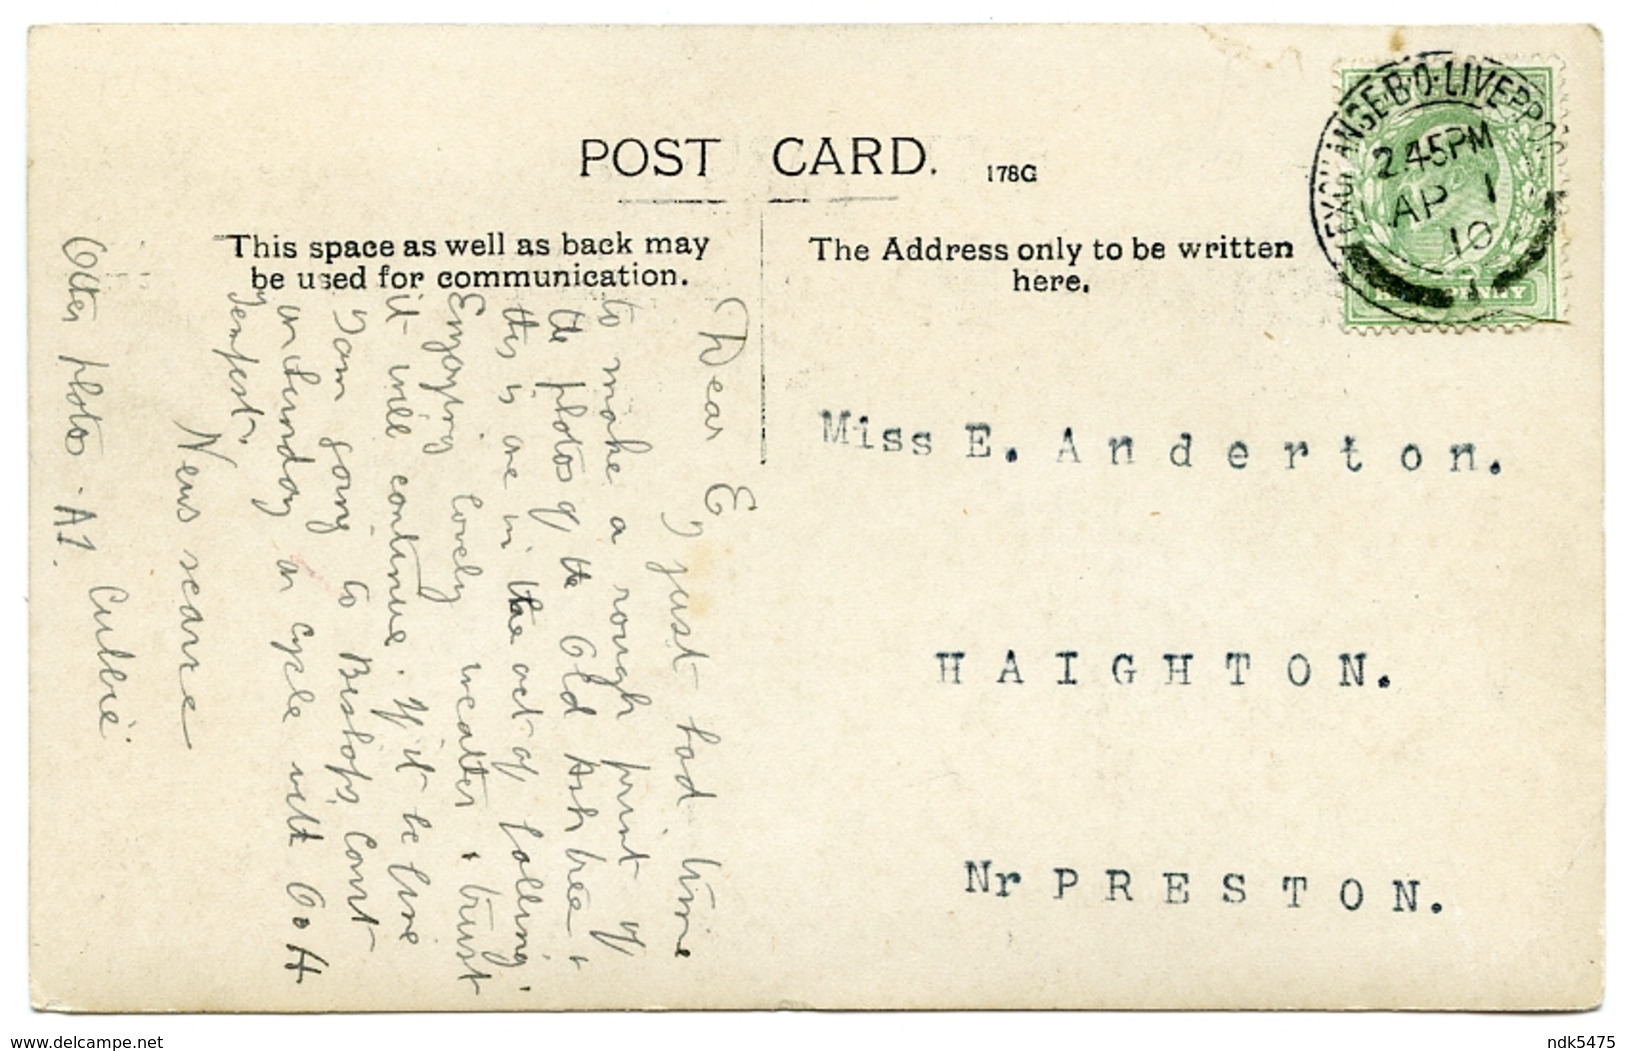 POST CARD. 178G
This space as well as back may
be used for communication.
The Address only to be written
here.
EXCHANGE.B.O.LIVERPOOL
2.45PM
AP 1
10
HALFPENNY
Miss E. Anderton.
HAIGHTON.
Nr PRESTON.
Dear E
I just had time
to make a rough print of
the photos of the Old Ash tree &
this is one in the act of falling.
Enjoying lovely weather & trust
it will continue. If it be fine
I am going to Bishops Court
on Sunday on cycle with
Tempest.
News scarce
Cuthie
Other photos A1.
www.delcampe.net
ndk5475